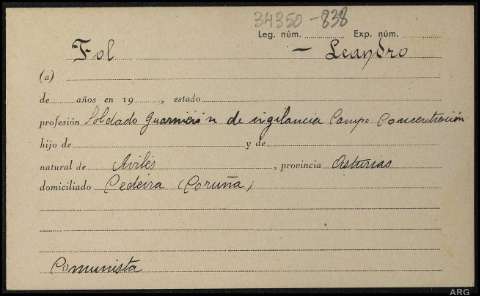 34350-838
Leg. núm. Exp. núm.
Fol - Leandro
(a)
de años en 19 , estado
profesión Soldado Guarnición de vigilancia Campo Concentración
hijo de y de
natural de Aviles , provincia Asturias
domiciliado Cedeira (Coruña)
Comunista
ARG